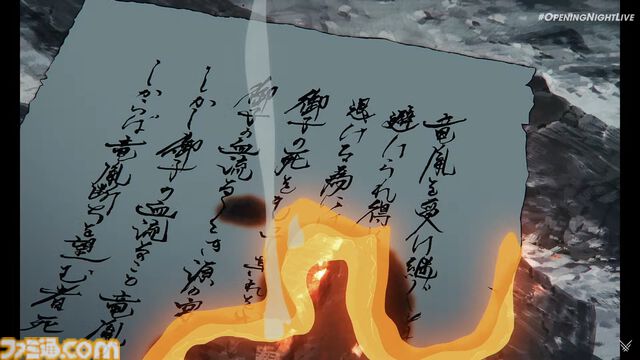 #OPENINGNIGHTLIVE
竜胤を受け継
避けられ得
退ける為に
御子の死を
御子の血流るるとき源の宮
しかし御子の血流るること竜胤
しからば竜胤断ちを望む者死
ファミ通.com